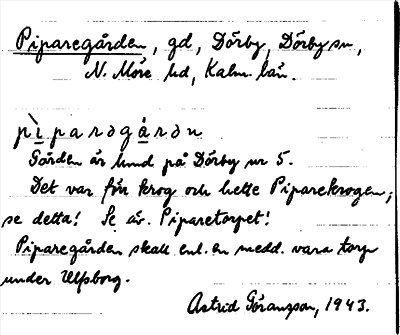 Piparegården, gd, Dörby, Dörby sn,
N. Möre hd, Kalm. län.
pìparəgárəən
Gården är hmd på Dörby nr 5.
Det var förr krog och hette Piparekrogen;
se detta! Se äv. Piparetorpet!
Piparegården skall enl. en medd. vara torp
under Ulfsborg.
Astrid Göransson, 1943.